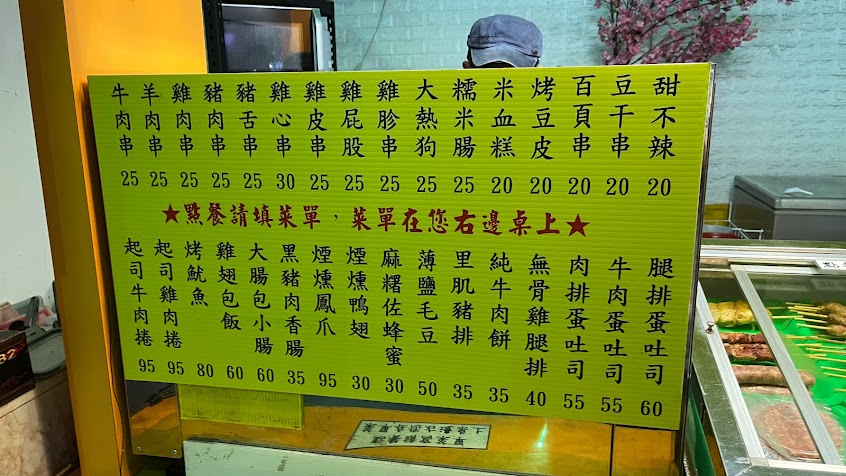 牛肉串 25
羊肉串 25
雞肉串 25
豬肉串 25
豬舌串 25
雞心串 30
雞皮串 25
雞屁股 25
雞胗串 25
大熱狗 25
糯米腸 25
米血糕 20
烤豆皮 20
百頁串 20
豆干串 20
甜不辣 20
★點餐請填菜單，菜單在您右邊桌上★
起司牛肉捲 95
起司雞肉捲 95
烤魷魚 80
雞翅包飯 60
大腸包小腸 60
黑豬肉香腸 35
煙燻鳳爪 95
煙燻鴨翅 30
麻糬佐蜂蜜 30
薄鹽毛豆 50
里肌豬排 35
純牛肉餅 35
無骨雞腿排 40
肉排蛋吐司 55
牛肉蛋吐司 55
腿排蛋吐司 60